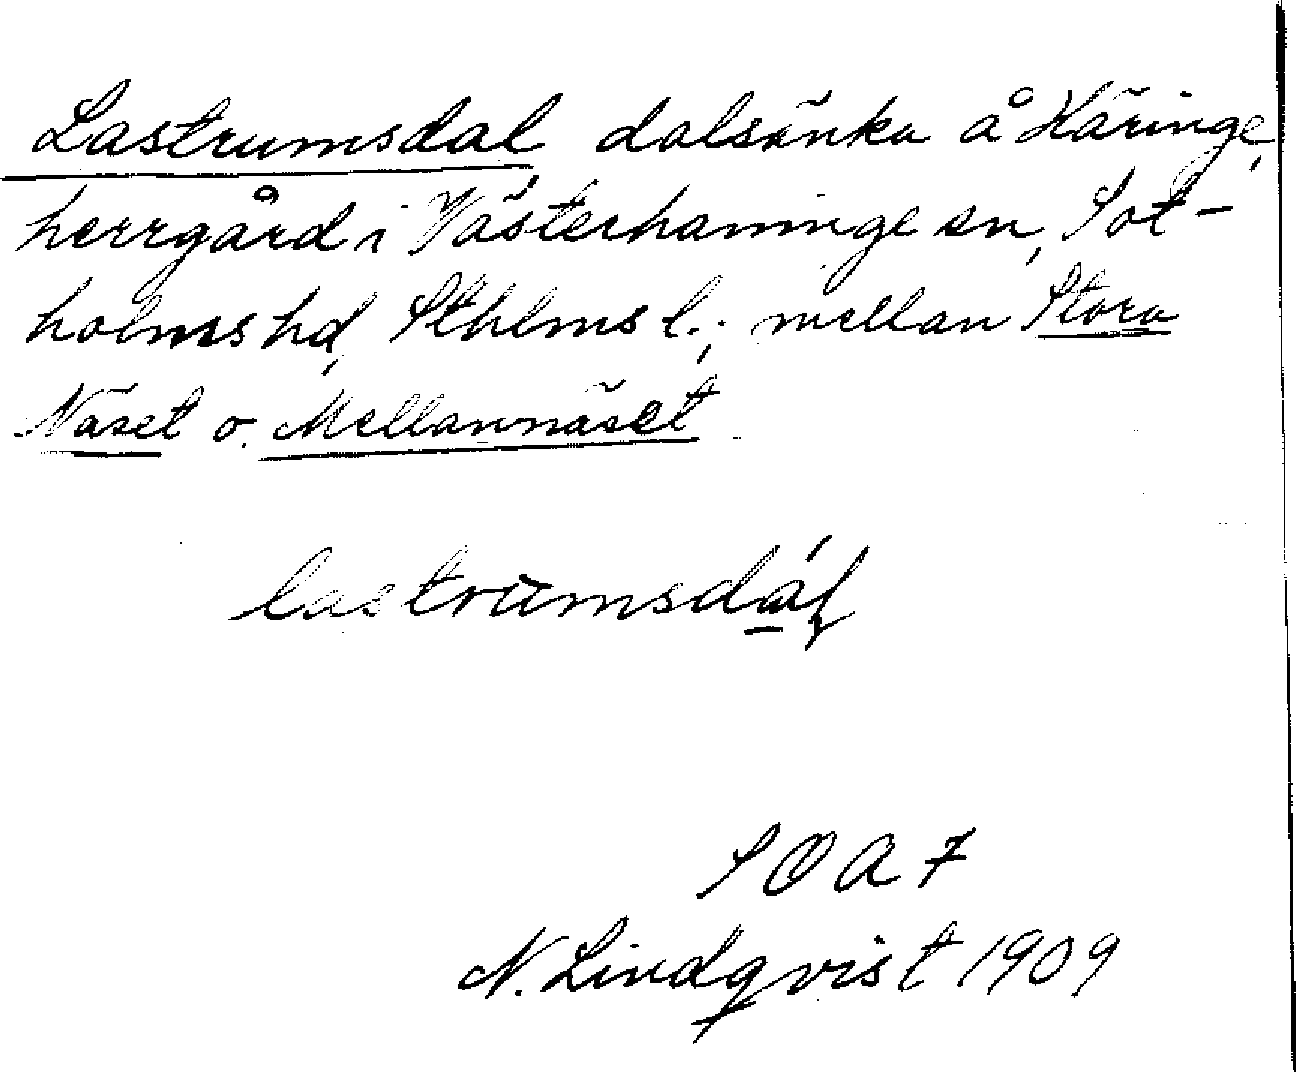 Lastrumsdal, dalsänka å Häringe,
herrgård i Västerhaninge sn, Sot-
holms hd, Sthlms l.; mellan Stora
Näset o. Mellannäset.
lastrumsdál
SOA 7
N. Lindqvist 1909